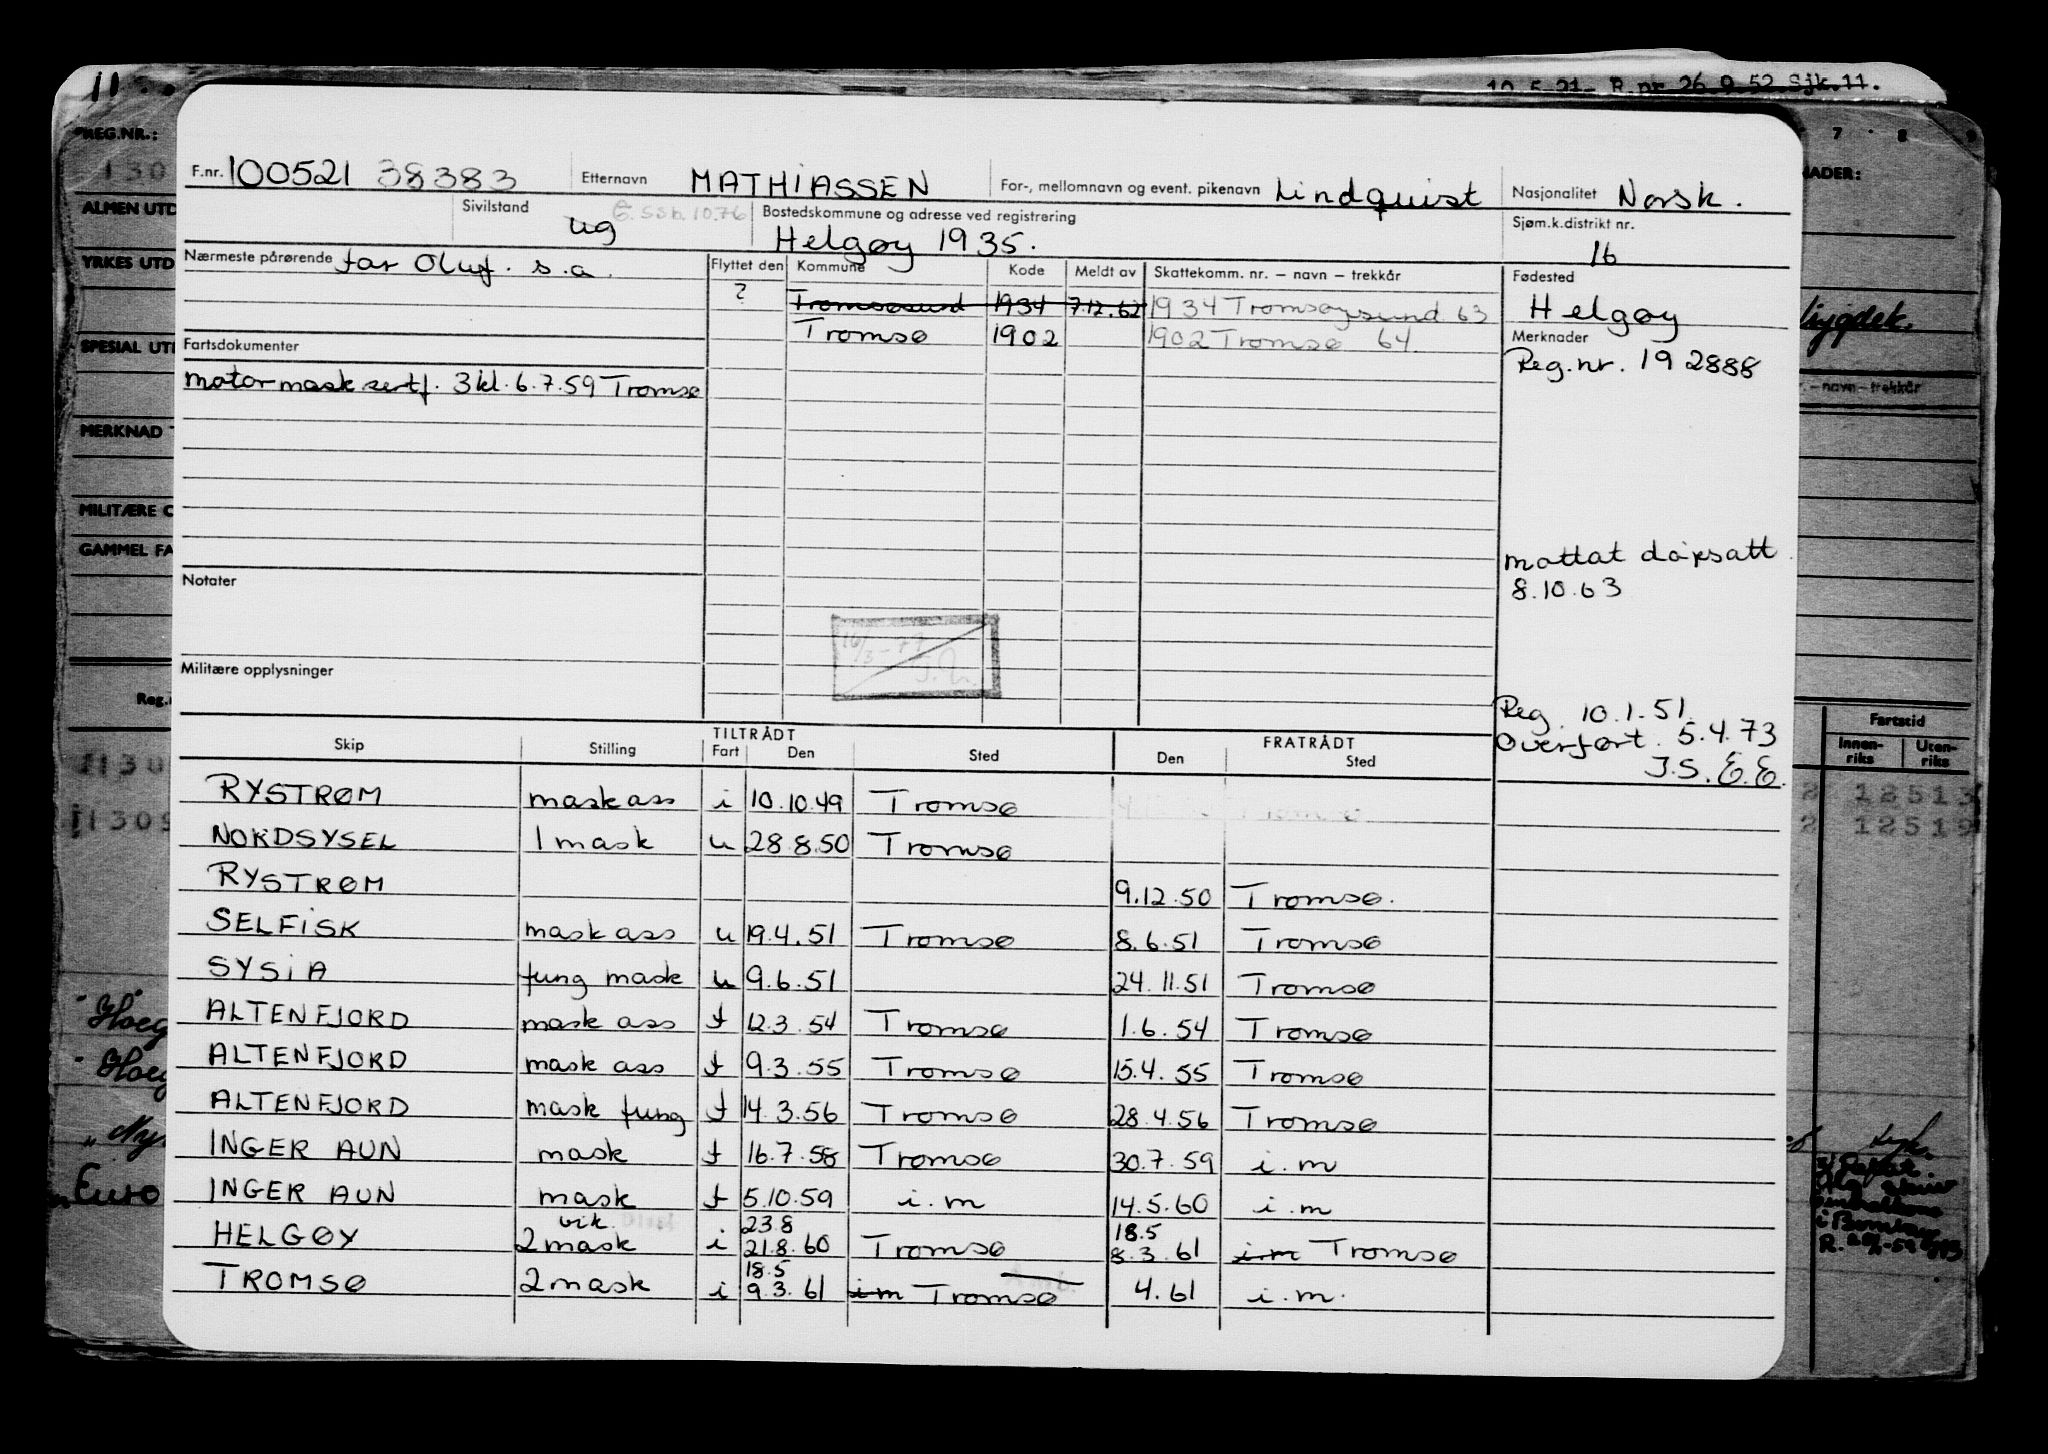 11
10.5.21- R.nr 26.9.52 Sjk.11.
REG.NR.:
130
7 8 9
F.nr. 100521 38383 Etternavn MATHIASSEN For-, mellomnavn og event. pikenavn Lindquist Nasjonalitet Norsk.
ALMEN UTD
Sivilstand ug G. SSB. 10.76 Bostedskommune og adresse ved registrering Helgøy 1935. Sjøm.k.distrikt nr. 16
YRKES UTD
Nærmeste pårørende far Oluf. s.a. Flyttet den Kommune Kode Meldt av Skattekomm. nr. – navn – trekkår Fødested
? Tromsøsund 1934 7.12.62 1934 Tromsøysund 63 Helgøy
Tromsø 1902 1902 Tromsø 64 Merknader
SPESIAL UT
Fartsdokumenter Reg.nr. 192888
– navn – trekkår
motormask sertf. 3kl. 6.7.59 Tromsø
MERKNAD
MILITÆRE
GAMMEL FA
mottat
8.10.63
Notater
16/3-77
Militære opplysninger
Reg. 10.1.51
Overført. 5.4.73
J.S. E.E.
Reg.
Fartstid
Innen-riks Uten-riks
TILTRÅDT FRATRÅDT
Skip Stilling Fart Den Sted Den Sted
RYSTRØM mask ass i 10.10.49 Tromsø
NORDSYSEL 1 mask u 28.8.50 Tromsø
RYSTRØM 9.12.50 Tromsø.
SELFISK mask ass u 19.4.51 Tromsø 8.6.51 Tromsø
SYSIA fung mask u 9.6.51 24.11.51 Tromsø
ALTENFJORD mask ass f 12.3.54 Tromsø 1.6.54 Tromsø
ALTENFJORD mask ass f 9.3.55 Tromsø 15.4.55 Tromsø
ALTENFJORD mask fung f 14.3.56 Tromsø 28.4.56 Tromsø
INGER AUN mask f 16.7.58 Tromsø 30.7.59 i.m
INGER AUN mask f 5.10.59 i.m 14.5.60 i.m
vik. 23.8 18.5
HELGØY 2 mask i 21.8.60 Tromsø 8.3.61 i.m Tromsø
18.5
TROMSØ 2 mask i 9.3.61 i m Tromsø 4.61 i.m.
12513
12519
Euro